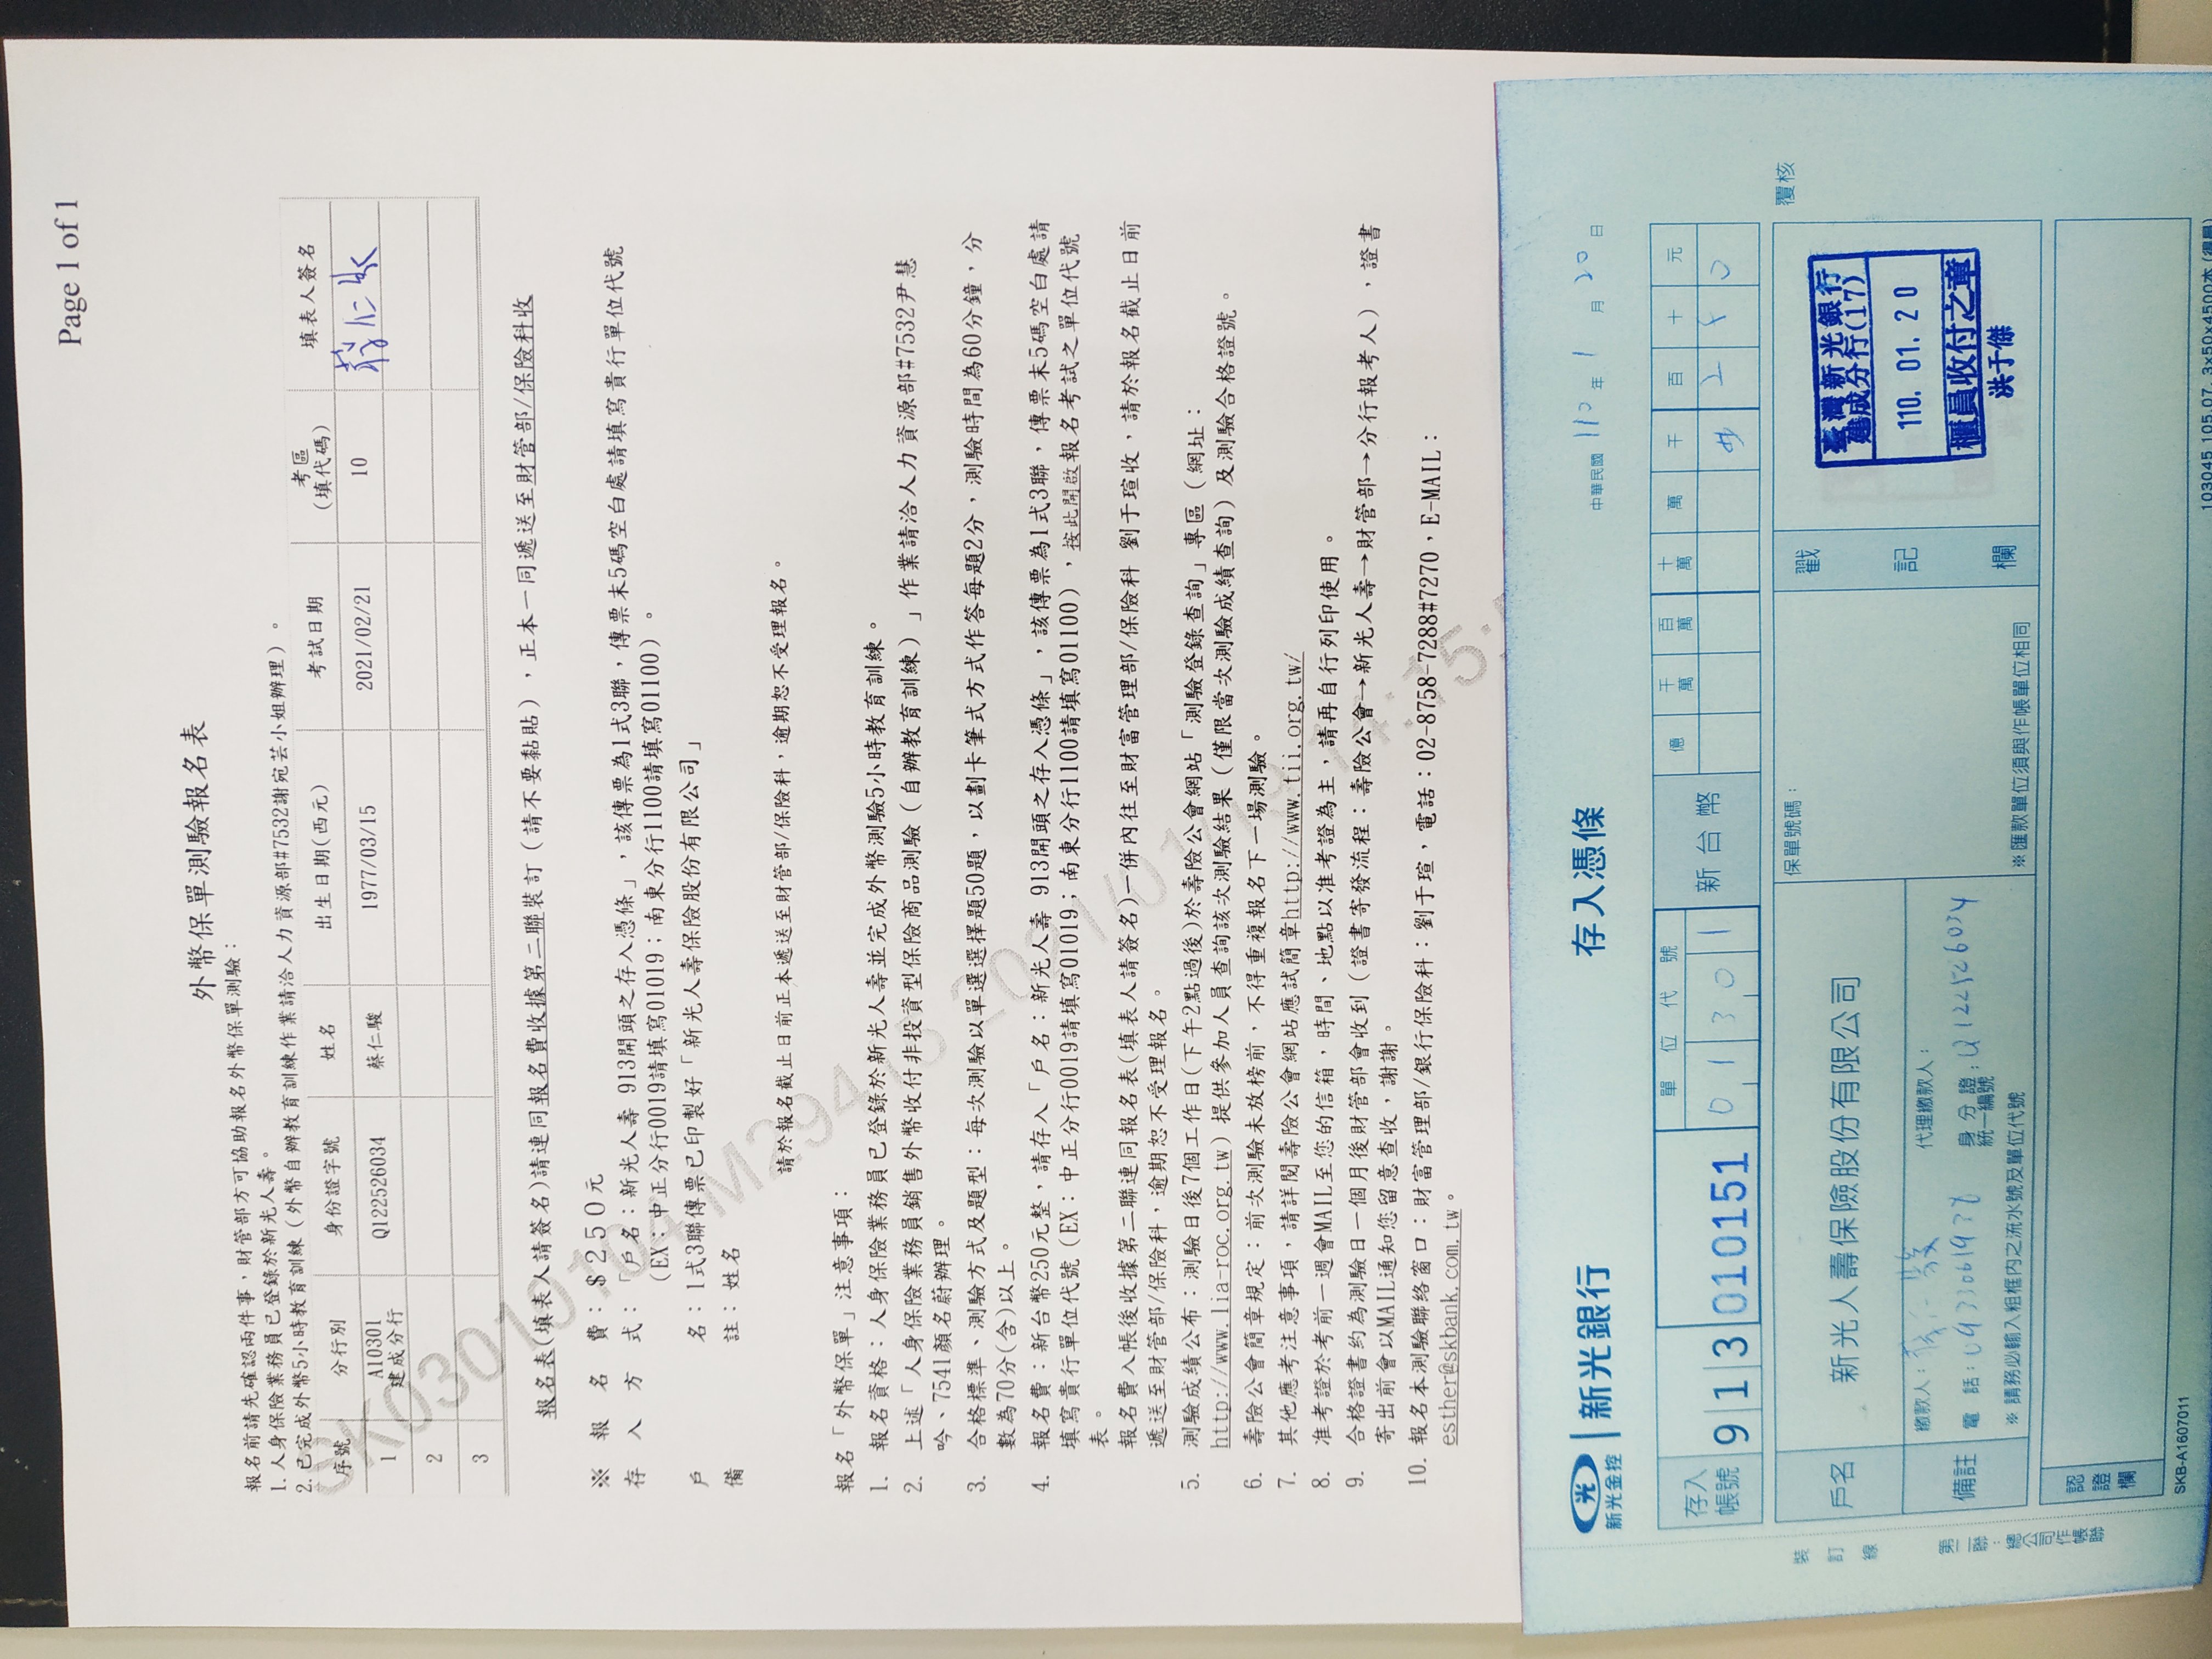 Page 1 of 1
外幣保單測驗報名表
報名前請先確認兩件事，財管部方可協助報名外幣保單測驗：
1. 人身保險業務員已登錄於新光人壽。
2. 已完成外幣5小時教育訓練（外幣自辦教育訓練作業請洽人力資源部#7532謝宛芸小姐辦理）。
序號 分行別 身份證字號 姓名 出生日期(西元) 考試日期 考區(填代碼) 填表人簽名
1 A10301 建成分行 Q122526034 蔡仁駿 1977/03/15 2021/02/21 10
2
3
報名表(填表人請簽名)請連同報名費收據第二聯裝訂（請不要黏貼），正本一同遞送至財管部/保險科收
※ 報名費：$250元
存入方式：「戶名：新光人壽 913開頭之存入憑條」，該傳票為1式3聯，傳票末5碼空白處請填寫貴行單位代號
（EX：中正分行0019請填寫01019；南東分行1100請填寫01100）。
戶名：1式3聯傳票已印製好「新光人壽保險股份有限公司」
備註：姓名
請於報名截止日前正本遞送至財管部/保險科，逾期恕不受理報名。
報名「外幣保單」注意事項：
1. 報名資格：人身保險業務員已登錄於新光人壽並完成外幣測驗5小時教育訓練。
2. 上述「人身保險業務員銷售外幣收付非投資型保險商品測驗（自辦教育訓練）」作業請洽人力資源部#7532尹慧
吟、7541顏名蔚辦理。
3. 合格標準、測驗方式及題型：每次測驗以單選選擇題50題，以劃卡筆式方式作答每題2分，測驗時間為60分鐘，分
數為70分(含)以上。
4. 報名費：新台幣250元整，請存入「戶名：新光人壽 913開頭之存入憑條」，該傳票為1式3聯，傳票末5碼空白處請
填寫貴行單位代號（EX：中正分行0019請填寫01019；南東分行1100請填寫01100），按此開啟報名考試之單位代號
表。
報名費入帳後收據第二聯連同報名表(填表人請簽名)一併內往至財富管理部/保險科 劉于瑄收，請於報名截止日前
遞送至財管部/保險科，逾期恕不受理報名。
5. 測驗成績公布：測驗日後7個工作日(下午2點過後)於壽險公會網站「測驗登錄查詢」專區（網址：
http://www.lia-roc.org.tw）提供參加人員查詢該次測驗結果（僅限當次測驗成績查詢）及測驗合格證號。
6. 壽險公會簡章規定：前次測驗未放榜前，不得重複報名下一場測驗。
7. 其他應考注意事項，請詳閱壽險公會網站應試簡章http://www.tii.org.tw/
8. 准考證於考前一週會MAIL至您的信箱，時間、地點以准考證為主，請再自行列印使用。
9. 合格證書約為測驗日一個月後財管部會收到（證書寄發流程：壽險公會→新光人壽→財管部→分行報考人），證書
寄出前會以MAIL通知您留意查收，謝謝。
10. 報名本測驗聯絡窗口：財富管理部/銀行保險科：劉于瑄，電話：02-8758-7288#7270，E-MAIL：
esther@skbank.com.tw。
新光金控 新光銀行 存入憑條 中華民國 110 年 1 月 20 日
存入帳號 913 010151 單位代號 01301 新台幣 億 千萬 百萬 十萬 萬 千 百 十 元
# 2 5 0
戶名 新光人壽保險股份有限公司 保單號碼： 戳記欄 覆核
臺灣新光銀行
建成分行(17)
110. 01. 20
櫃員收付之章
洪于傑
備註 繳款人： 代理繳款人：
電話：0933061938 身分證統一編號：Q122526034
※ 請務必輸入粗框內之流水號及單位代號
※匯款單位須與作帳單位相同
認證欄
裝訂線
第二聯：總公司作帳聯
SKB-A1607011
103045 105.07. 3×50×4500本